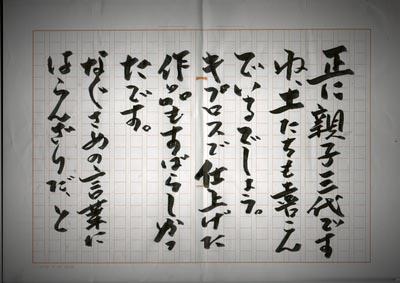 正に親子三代です
ね、土たちも喜こん
でいるでしょう。
キプロスで仕上げた
作品もすばらしかっ
たです。
なじさめの言葉に
はらんざりだ、と